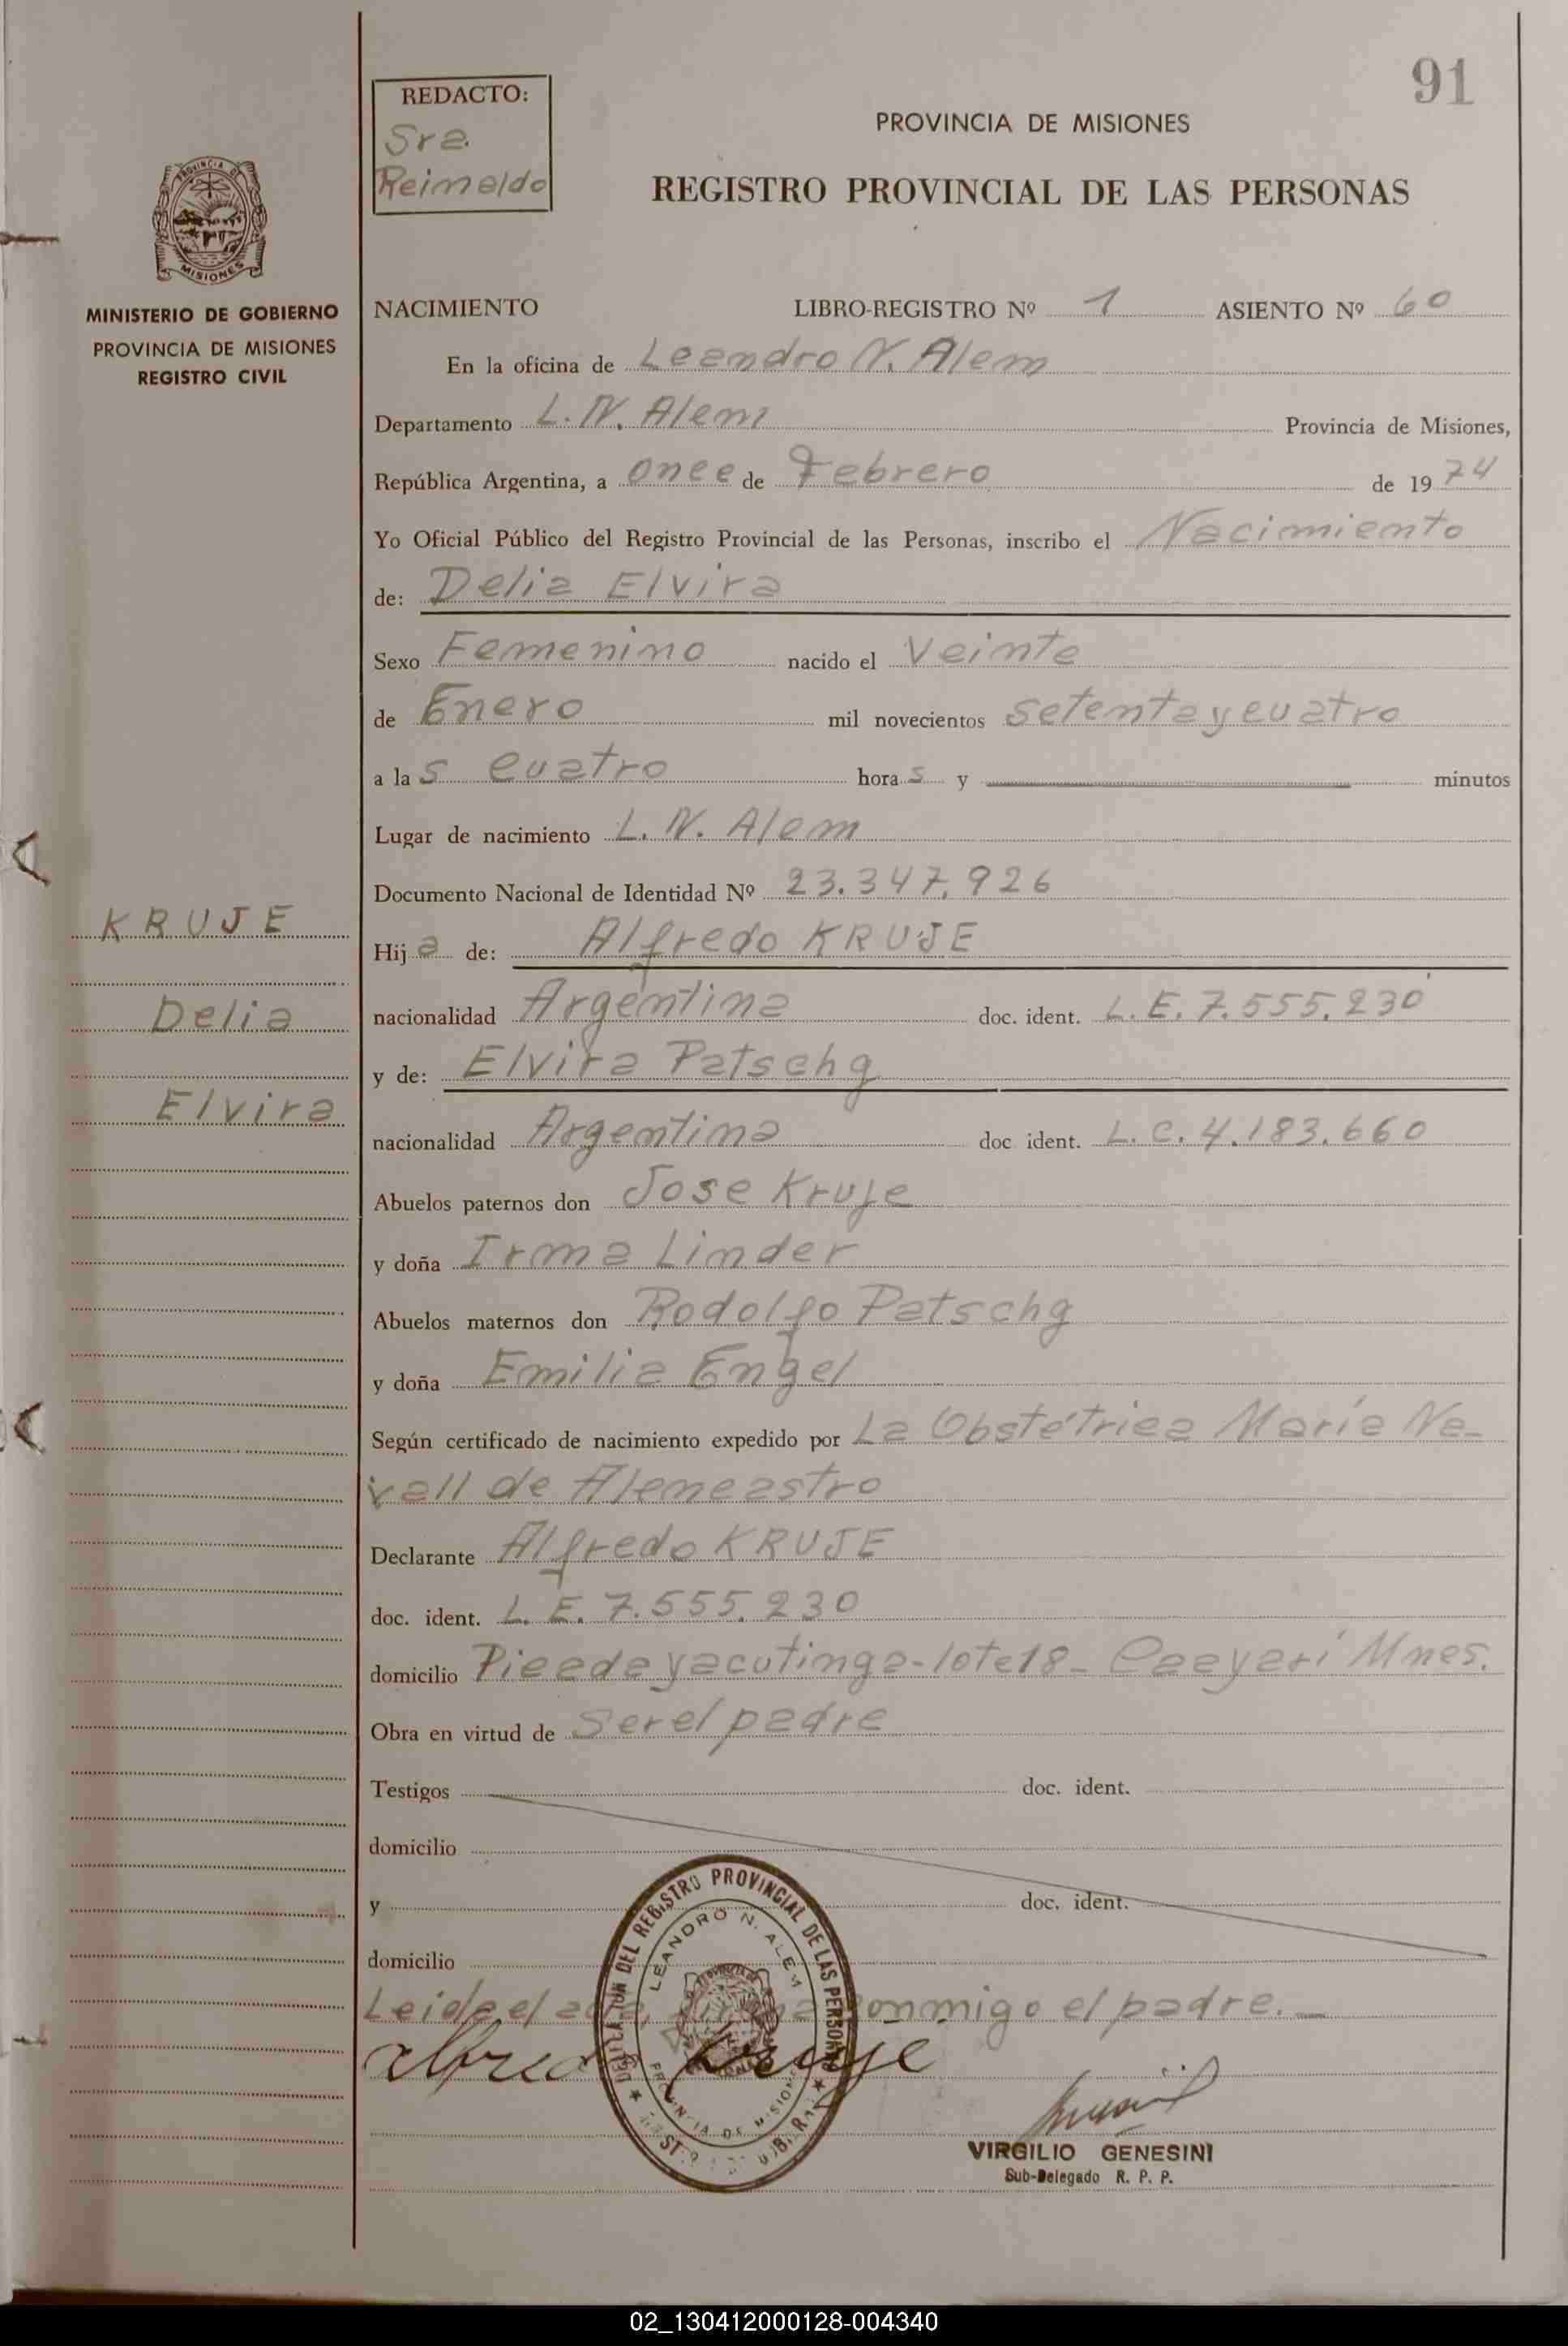 91
REDACTO:
Sra.
Reimaldo
PROVINCIA DE MISIONES
REGISTRO PROVINCIAL DE LAS PERSONAS
PROVINCIA DE
MISIONES
MINISTERIO DE GOBIERNO
PROVINCIA DE MISIONES
REGISTRO CIVIL
NACIMIENTO LIBRO-REGISTRO Nº 1 ASIENTO Nº 60
En la oficina de Leandro N. Alem
Departamento L. N. Alem Provincia de Misiones,
República Argentina, a once de Febrero de 1974
Yo Oficial Público del Registro Provincial de las Personas, inscribo el Nacimiento
de: Delia Elvira
Sexo Femenino nacido el Veinte
de Enero mil novecientos setenta y cuatro
a las cuatro horas y minutos
Lugar de nacimiento L. N. Alem
Documento Nacional de Identidad Nº 23.347.926
KRUJE
Delia
Elvira
Hija de: Alfredo KRUJE
nacionalidad Argentina doc. ident. L. E. 7.555.230
y de: Elvira Patschg
nacionalidad Argentina doc ident. L. C. 4.183.660
Abuelos paternos don Jose Kruje
y doña Irma Linder
Abuelos maternos don Rodolfo Patschg
y doña Emilia Engel
Según certificado de nacimiento expedido por La Obstétrica María Na-
vall de Alencastro
Declarante Alfredo KRUJE
doc. ident. L. E. 7.555.230
domicilio Picada yacutinga-lote 18- Caayarí Mnes.
Obra en virtud de ser el padre
Testigos doc. ident.
domicilio
y doc. ident.
domicilio
Leida el conmigo el padre.
DELEGACION DEL REGISTRO PROVINCIAL DE LAS PERSONAS
LEANDRO N. ALEM
PROVINCIA DE MISIONES
Kruje
VIRGILIO GENESINI
Sub-Delegado R. P. P.
02_130412000128-004340